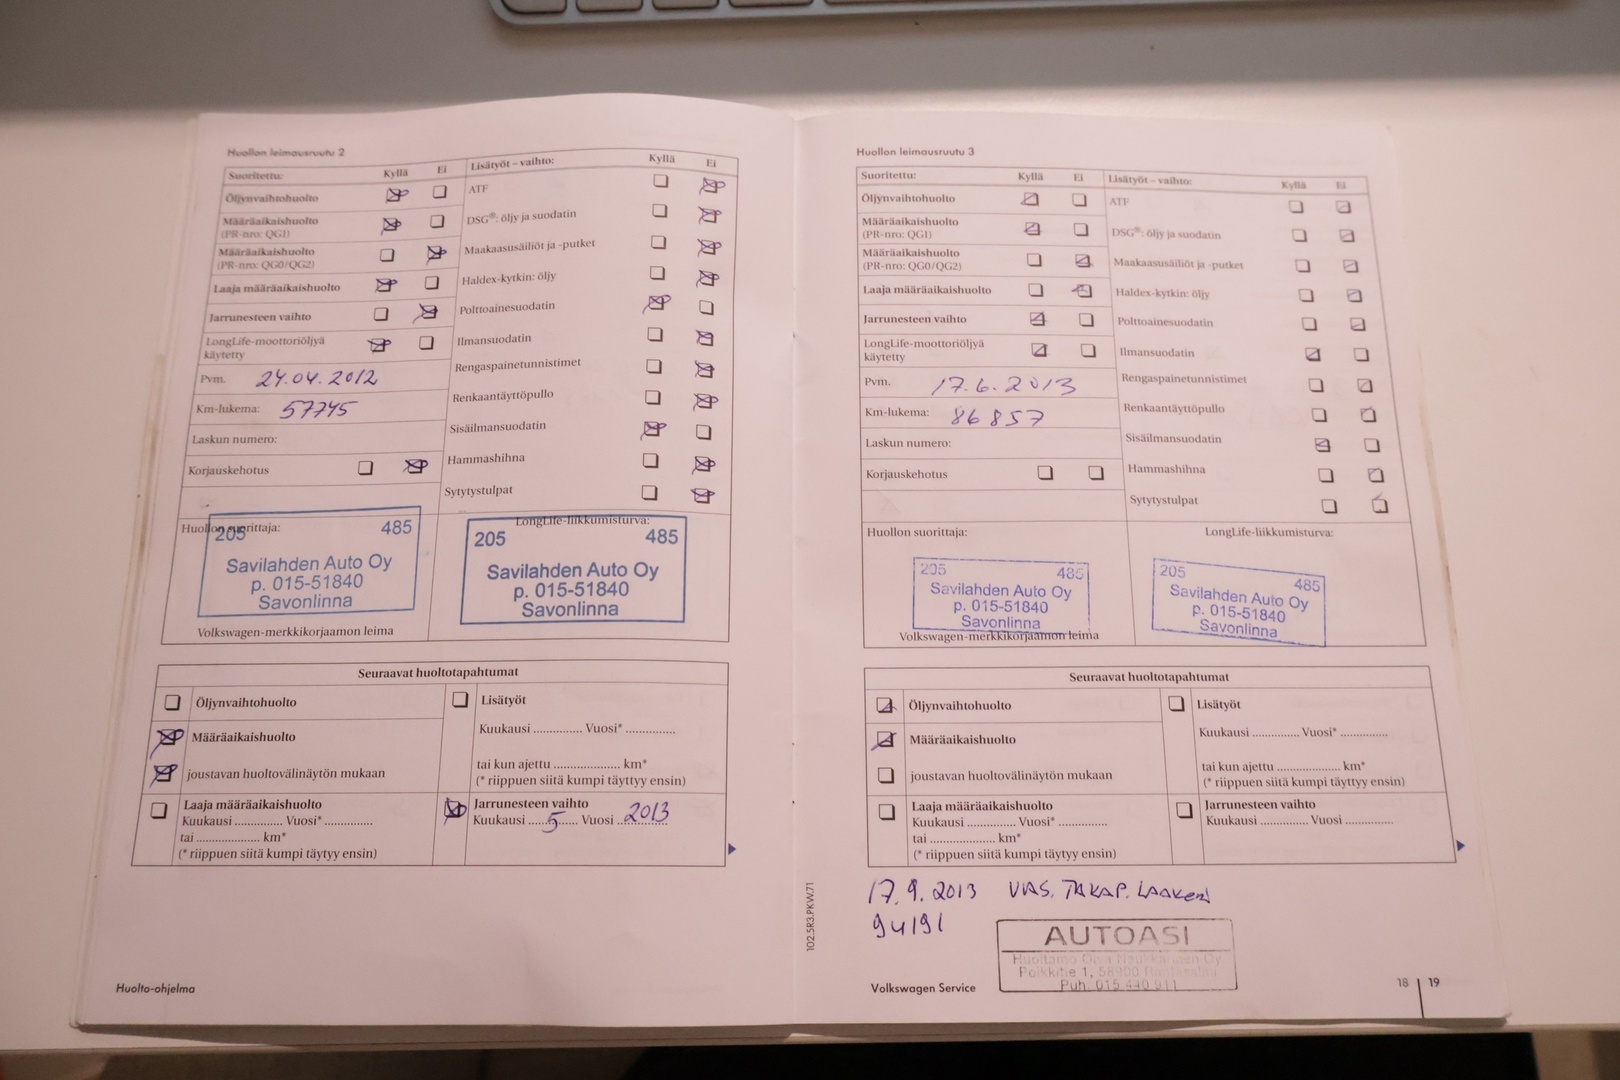 Huollon leimausruutu 2
Suoritettu: Kyllä Ei Lisätyöt – vaihto: Kyllä Ei
Öljynvaihtohuolto
ATF
Määräaikaishuolto
(PR-nro: QG1)
DSG®: öljy ja suodatin
Määräaikaishuolto
(PR-nro: QG0/QG2)
Maakaasusäiliöt ja -putket
Laaja määräaikaishuolto
Haldex-kytkin: öljy
Jarrunesteen vaihto
Polttoainesuodatin
LongLife-moottoriöljyä
käytetty
Ilmansuodatin
Rengaspainetunnistimet
Pvm. 24.04.2012
Renkaantäyttöpullo
Km-lukema: 57745
Sisäilmansuodatin
Laskun numero:
Hammashihna
Korjauskehotus
Sytytystulpat
Huollon suorittaja:
LongLife-liikkumisturva:
205 485
Savilahden Auto Oy
p. 015-51840
Savonlinna
205 485
Savilahden Auto Oy
p. 015-51840
Savonlinna
Volkswagen-merkkikorjaamon leima
Seuraavat huoltotapahtumat
Öljynvaihtohuolto
Lisätyöt
Määräaikaishuolto
Kuukausi .............. Vuosi* ...............
joustavan huoltovälinäytön mukaan
tai kun ajettu .................... km*
(* riippuen siitä kumpi täyttyy ensin)
Laaja määräaikaishuolto
Kuukausi .............. Vuosi* ..............
tai ................... km*
(* riippuen siitä kumpi täytyy ensin)
Jarrunesteen vaihto
Kuukausi ..... 5 ..... Vuosi .. 2013
Huolto-ohjelma
Huollon leimausruutu 3
Suoritettu: Kyllä Ei Lisätyöt – vaihto: Kyllä Ei
Öljynvaihtohuolto
ATF
Määräaikaishuolto
(PR-nro: QG1)
DSG®: öljy ja suodatin
Määräaikaishuolto
(PR-nro: QG0/QG2)
Maakaasusäiliöt ja -putket
Laaja määräaikaishuolto
Haldex-kytkin: öljy
Jarrunesteen vaihto
Polttoainesuodatin
LongLife-moottoriöljyä
käytetty
Ilmansuodatin
Pvm. 17.6.2013
Rengaspainetunnistimet
Km-lukema: 86857
Renkaantäyttöpullo
Laskun numero:
Sisäilmansuodatin
Korjauskehotus
Hammashihna
Sytytystulpat
Huollon suorittaja:
LongLife-liikkumisturva:
205 485
Savilahden Auto Oy
p. 015-51840
Savonlinna
205 485
Savilahden Auto Oy
p. 015-51840
Savonlinna
Volkswagen-merkkikorjaamon leima
Seuraavat huoltotapahtumat
Öljynvaihtohuolto
Lisätyöt
Määräaikaishuolto
Kuukausi .............. Vuosi* ..............
joustavan huoltovälinäytön mukaan
tai kun ajettu .................... km*
(* riippuen siitä kumpi täyttyy ensin)
Laaja määräaikaishuolto
Kuukausi .............. Vuosi* ..............
tai .................... km*
(* riippuen siitä kumpi täytyy ensin)
Jarrunesteen vaihto
Kuukausi .............. Vuosi ..............
17.9.2013 VAS. TAKAP. LAAKERI
94191
102.5R3.PKW.71
AUTOASI
Huoltamo Oiva Oy
Poikkitie 1, 58900 Rantasalmi
Puh. 015 440 911
Volkswagen Service
18 19